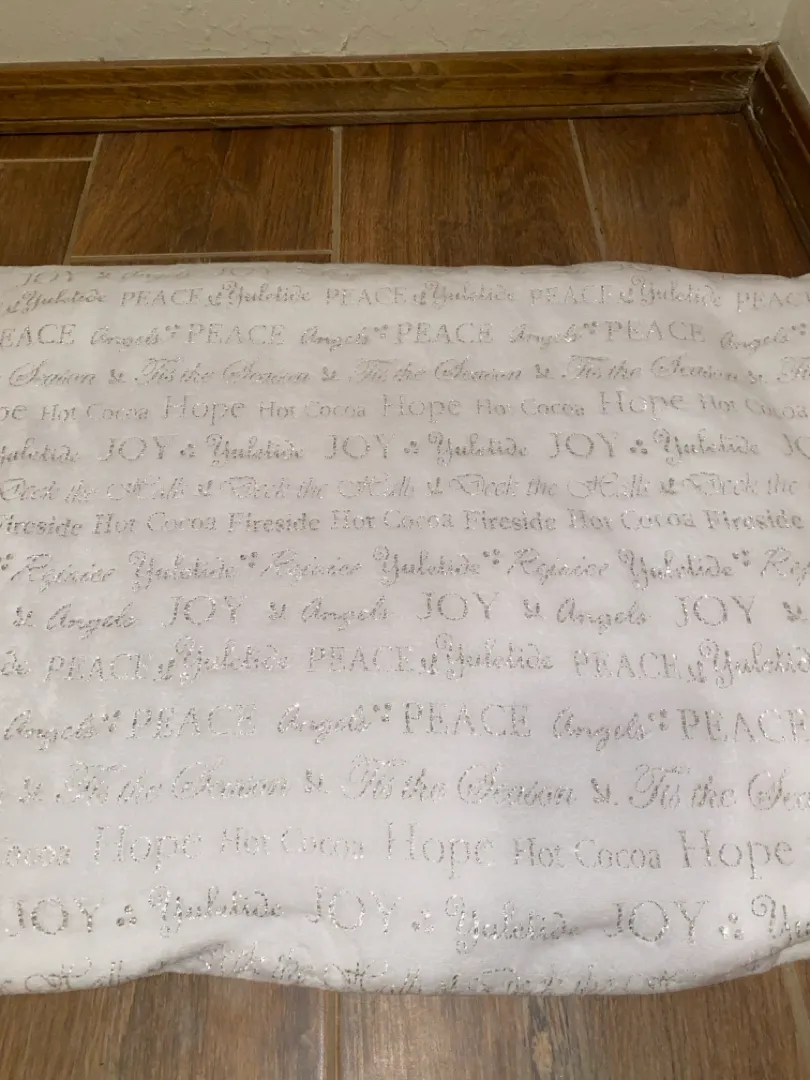 JOY Angels JOY
Yuletide PEACE Yuletide PEACE Yuletide PEACE Yuletide PEACE
PEACE Angels PEACE Angels PEACE Angels PEACE Angels
Season 'Tis the Season 'Tis the Season 'Tis the Season
Hot Cocoa Hope Hot Cocoa Hope Hot Cocoa Hope Hot Cocoa
Yuletide JOY Yuletide JOY Yuletide JOY Yuletide
Deck the Halls Deck the Halls Deck the Halls Deck the
Fireside Hot Cocoa Fireside Hot Cocoa Fireside Hot Cocoa Fireside
Rejoice Yuletide Rejoice Yuletide Rejoice Yuletide
Angels JOY Angels JOY Angels JOY
PEACE Yuletide PEACE Yuletide PEACE Yuletide
Angels PEACE Angels PEACE Angels PEACE
'Tis the Season 'Tis the Season 'Tis the
Cocoa Hope Hot Cocoa Hope Hot Cocoa Hope
JOY Yuletide JOY Yuletide JOY
Halls Deck the Halls Deck the